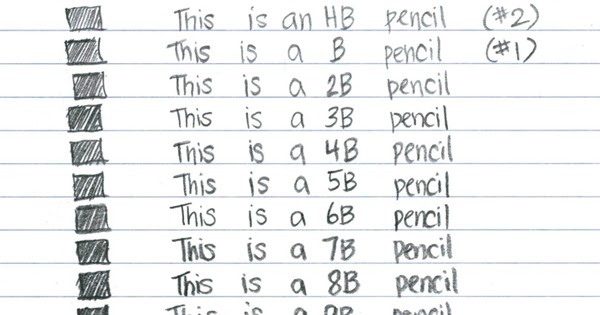 This is an HB pencil (#2)
This is a B pencil (#1)
This is a 2B pencil
This is a 3B pencil
This is a 4B pencil
This is a 5B pencil
This is a 6B pencil
This is a 7B pencil
This is a 8B pencil
This is a 9B pencil